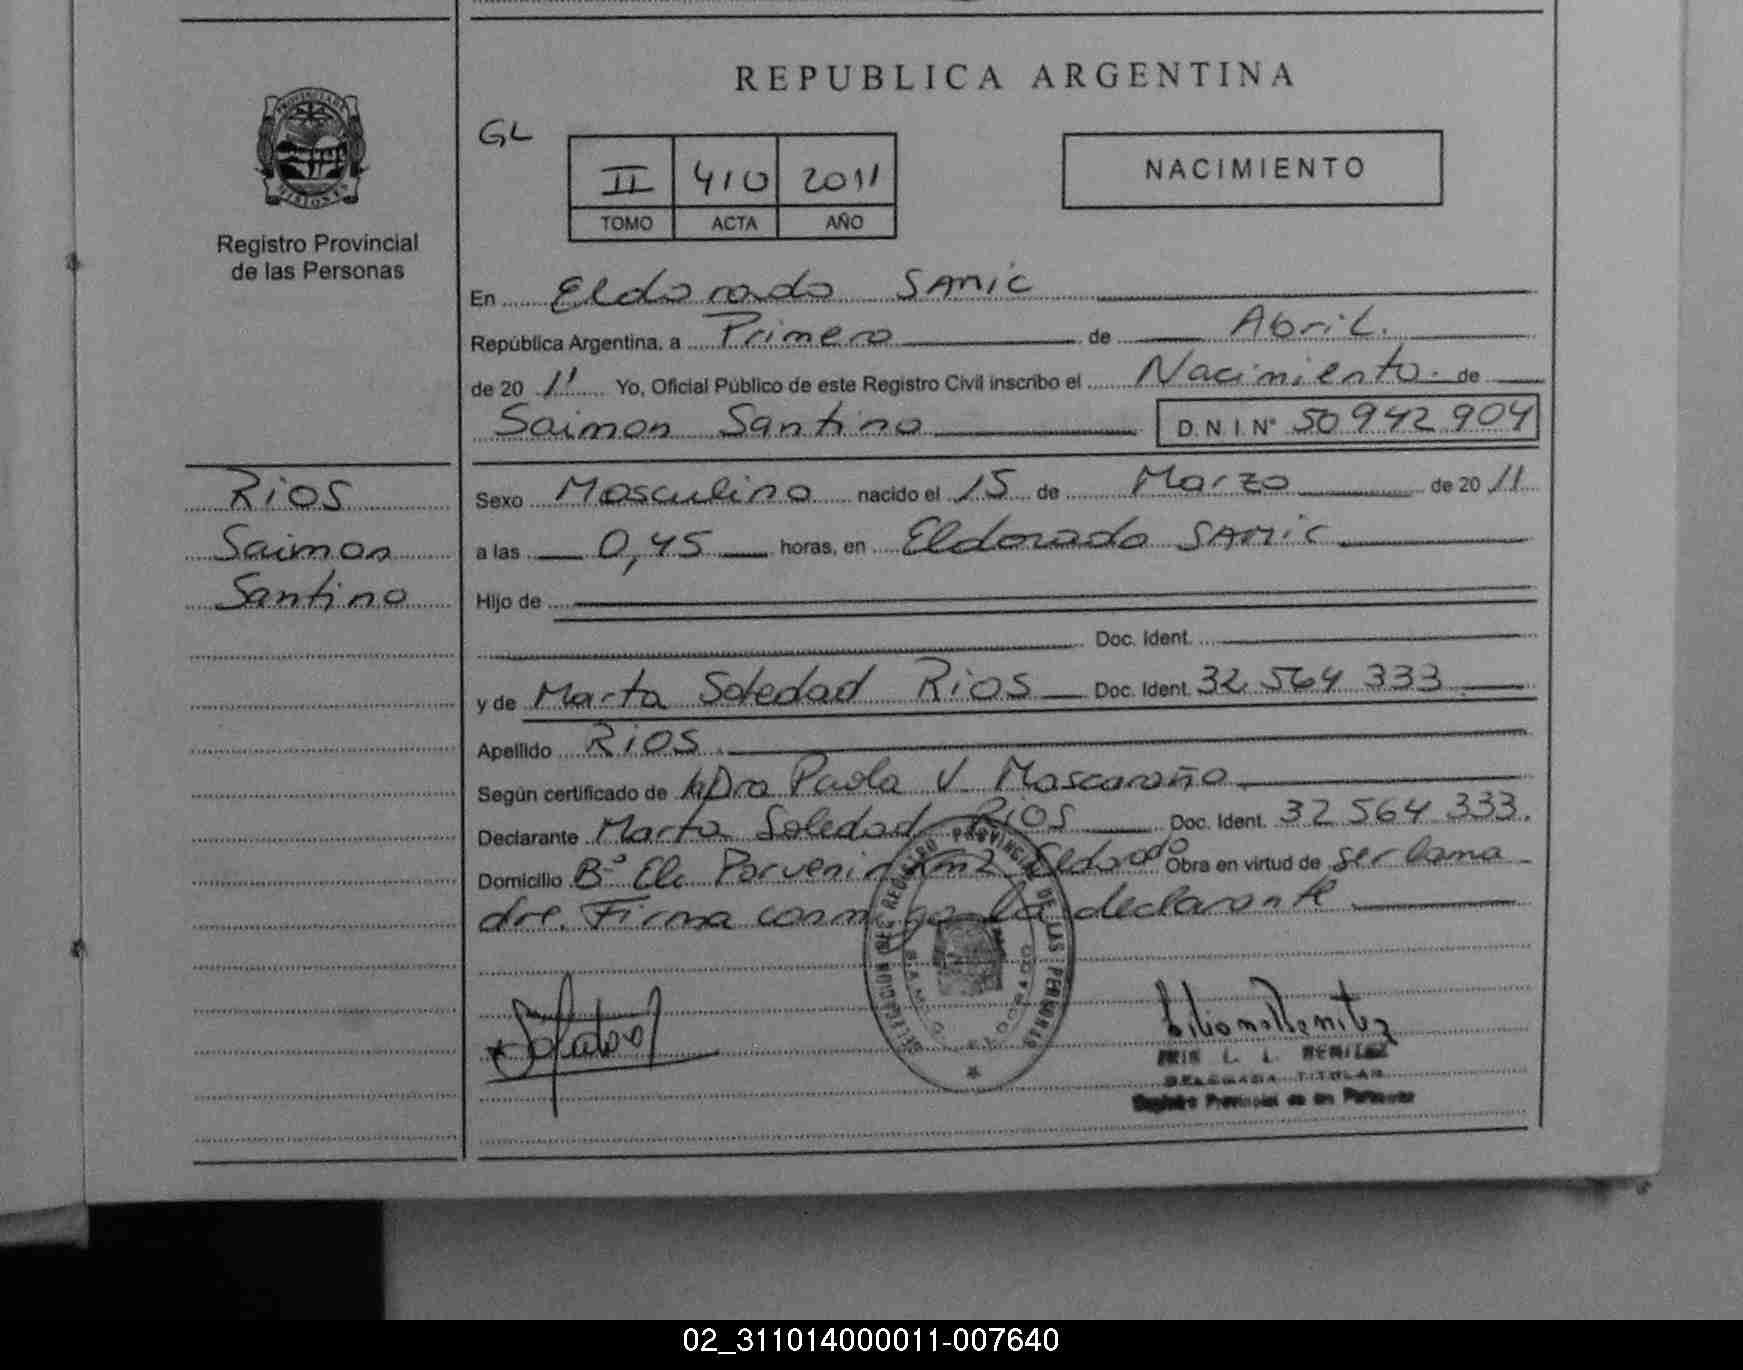 REPUBLICA ARGENTINA
GL
II 410 2011
TOMO ACTA AÑO
NACIMIENTO
PROVINCIA DE MISIONES
Registro Provincial
de las Personas
En Eldorado SAMIC
República Argentina, a Primero de Abril.
de 20 11 Yo, Oficial Público de este Registro Civil inscribo el Nacimiento de
Saimon Santino D.N.I. N° 50 942 904
RIOS
Saimon
Santino
Sexo Masculino nacido el 15 de Marzo de 20 11
a las 0,45 horas, en Eldorado SAMIC
Hijo de
Doc. Ident.
y de Marta Soledad RIOS Doc. Ident. 32 564 333
Apellido RIOS
Según certificado de Dra Paola V. Mascaraño
Declarante Marta Soledad RIOS Doc. Ident. 32 564 333.
Domicilio B° El Porvenir Km2 Eldorado Obra en virtud de ser la ma
dre. Firma conmigo la declarante
DELEGACION DEL REGISTRO PROVINCIAL DE LAS PERSONAS
ELDORADO
Liliana Benitez
IRIS L. L. BENITEZ
DELEGADA TITULAR
Registro Provincial de las Personas
02_311014000011-007640